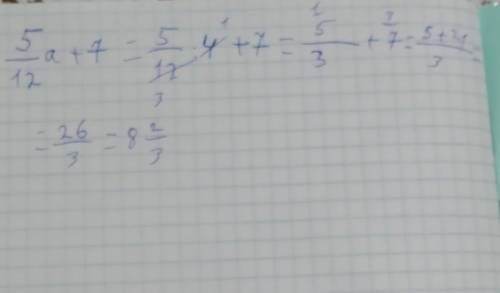 5/12 a + 7 = 5/12 · 4 + 7 = 5/3 + 7 = 5+21/3 =
= 26/3 = 8 2/3